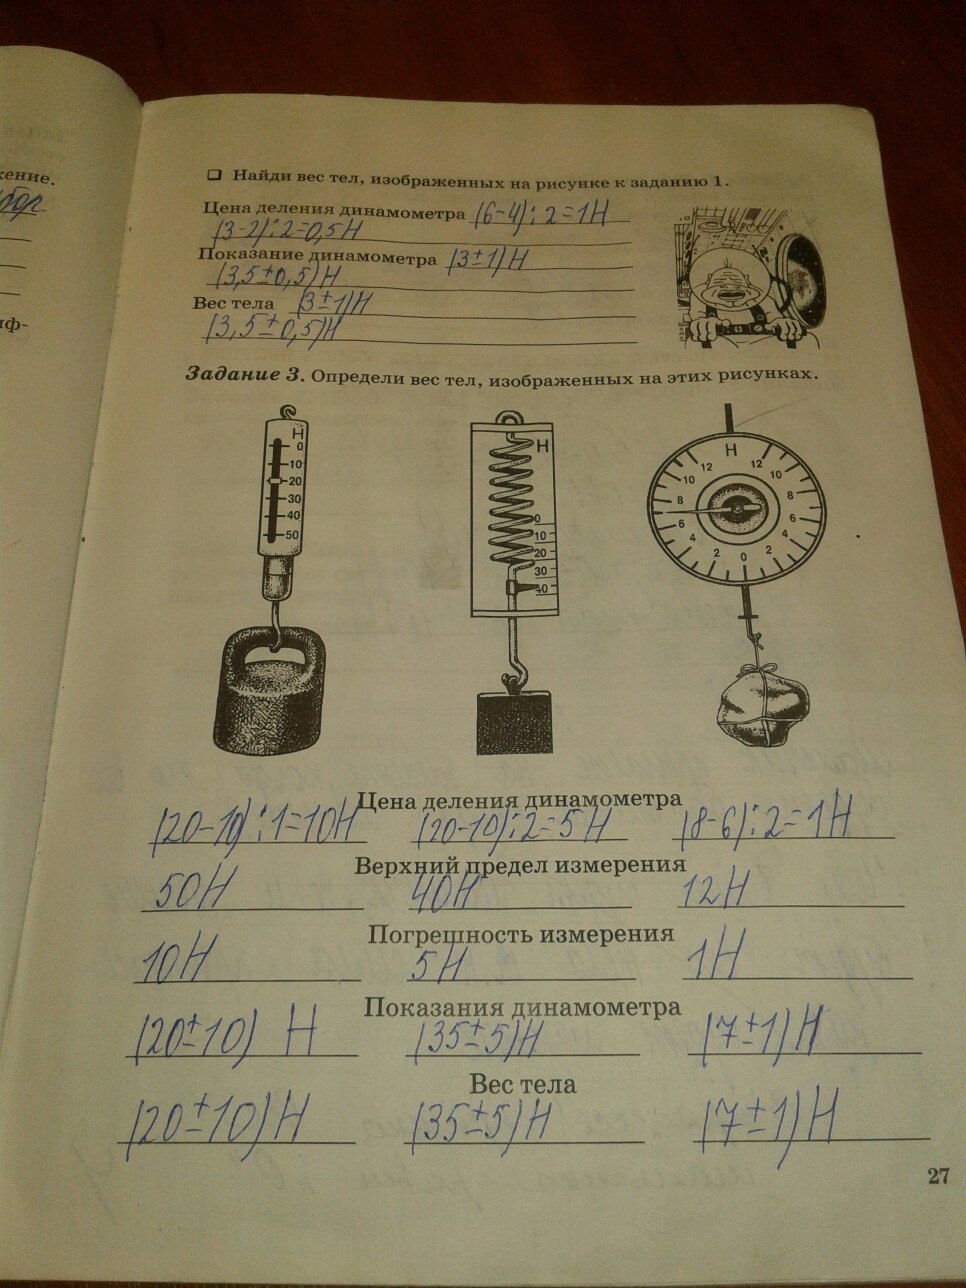 жение.
бор
иф-
❑ Найди вес тел, изображенных на рисунке к заданию 1.
Цена деления динамометра (6-4):2=1Н
(3-2):2=0,5Н
Показание динамометра (3±1)Н
(3,5±0,5)Н
Вес тела (3±1)Н
(3,5±0,5)Н
Задание 3. Определи вес тел, изображенных на этих рисунках.
Н
0
10
20
30
40
50
Н
0
10
20
30
40
Н
12 12
10 10
8 8
6 6
4 4
2 2
0
Цена деления динамометра
(20-10):1=10Н (20-10):2=5Н (8-6):2=1Н
Верхний предел измерения
50Н 40Н 12Н
Погрешность измерения
10Н 5Н 1Н
Показания динамометра
(20±10) Н (35±5)Н (7±1)Н
Вес тела
(20±10)Н (35±5)Н (7±1)Н
27